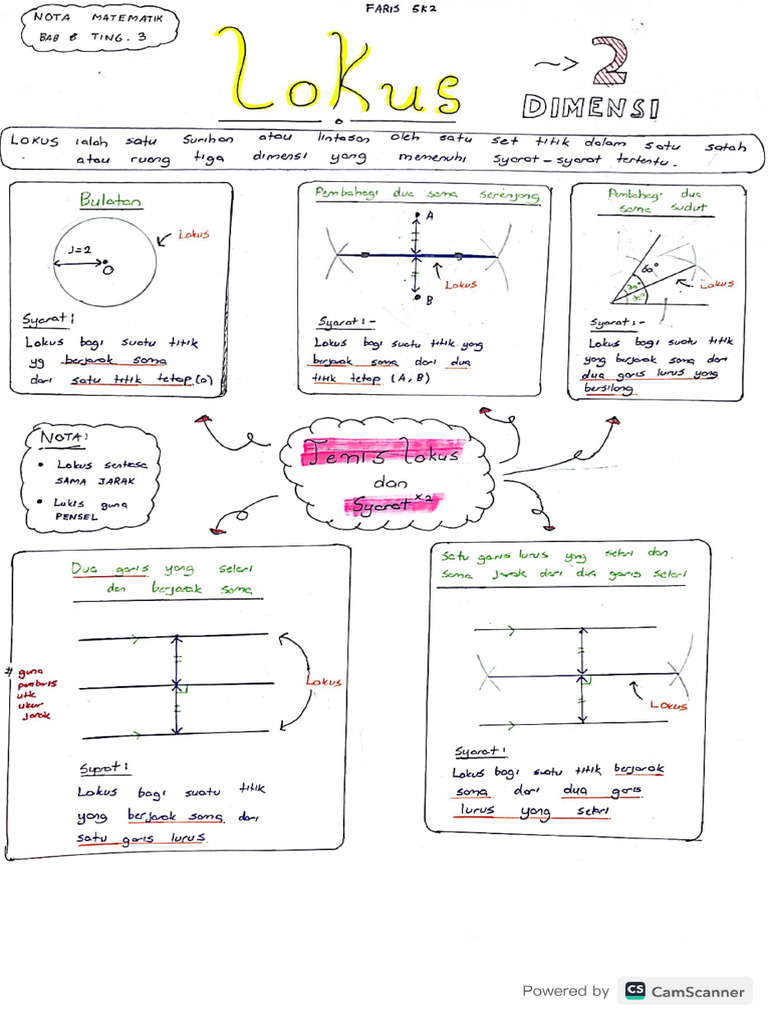 FARIS 5K2
NOTA MATEMATIK
BAB 8 TING. 3
Lokus
~> 2
DIMENSI
LOKUS ialah satu surihan atau lintasan oleh satu set titik dalam satu satah
atau ruang tiga dimensi yang memenuhi syarat-syarat tertentu.
Bulatan
J=2
O
Lokus
Syarat:
Lokus bagi suatu titik
yg berjarak sama
dari satu titik tetap (O)
Pembahagi dua sama serenjang
A
B
Lokus
Syarat:-
Lokus bagi suatu titik yang
berjarak sama dari dua
titik tetap (A, B)
Pembahagi dua
sama sudut
60°
30°
30°
Lokus
Syarat:-
Lokus bagi suatu titik
yang berjarak sama dari
dua garis lurus yang
bersilang.
NOTA:
• Lokus sentiasa
SAMA JARAK
• Lukis guna
PENSEL
Jenis Lokus
dan
Syarat x2
Dua garis yang selari
dan berjarak sama
# guna
pembaris
utk
ukur
jarak
Lokus
Syarat:
Lokus bagi suatu titik
yang berjarak sama dari
satu garis lurus.
Satu garis lurus yng selari dan
sama jarak dari dua garis selari
Lokus
Syarat:
Lokus bagi suatu titik berjarak
sama dari dua garis
lurus yang selari
Powered by CS CamScanner